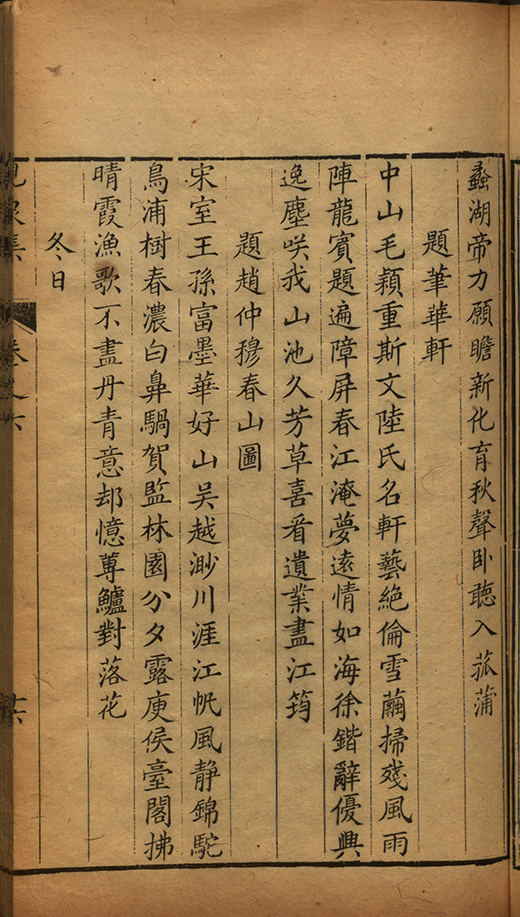 蠡湖帝力願瞻新化育秋聲卧聽入菰蒲
題筆華軒
中山毛穎重斯文陸氏名軒藝絶倫雪繭掃殘風雨
陣龍賓題遍障屏春江淹夢遠情如海徐鍇辭優興
逸塵咲我山池久芳草喜看遺業盡江筠
題趙仲穆春山圖
宋室王孫富墨華好山吴越渺川涯江帆風静錦駝
鳥浦樹春濃白鼻騧賀監林園分夕露庾侯臺閣拂
晴霞漁歌不盡丹青意却憶蓴鱸對落花
冬日
卷之六